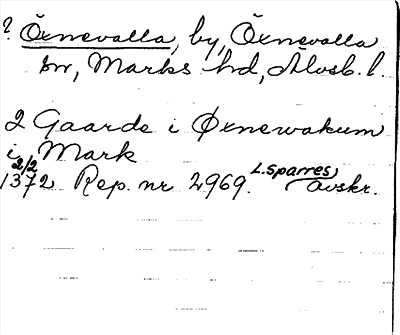 ? Öxnevalla, by, Öxnevalla
sn, Marks hd, Älvsb. l.
2 Gaarde i Øxnewakum
i Mark
2/2
1372 Rep. nr 2969. L. Sparres
avskr.